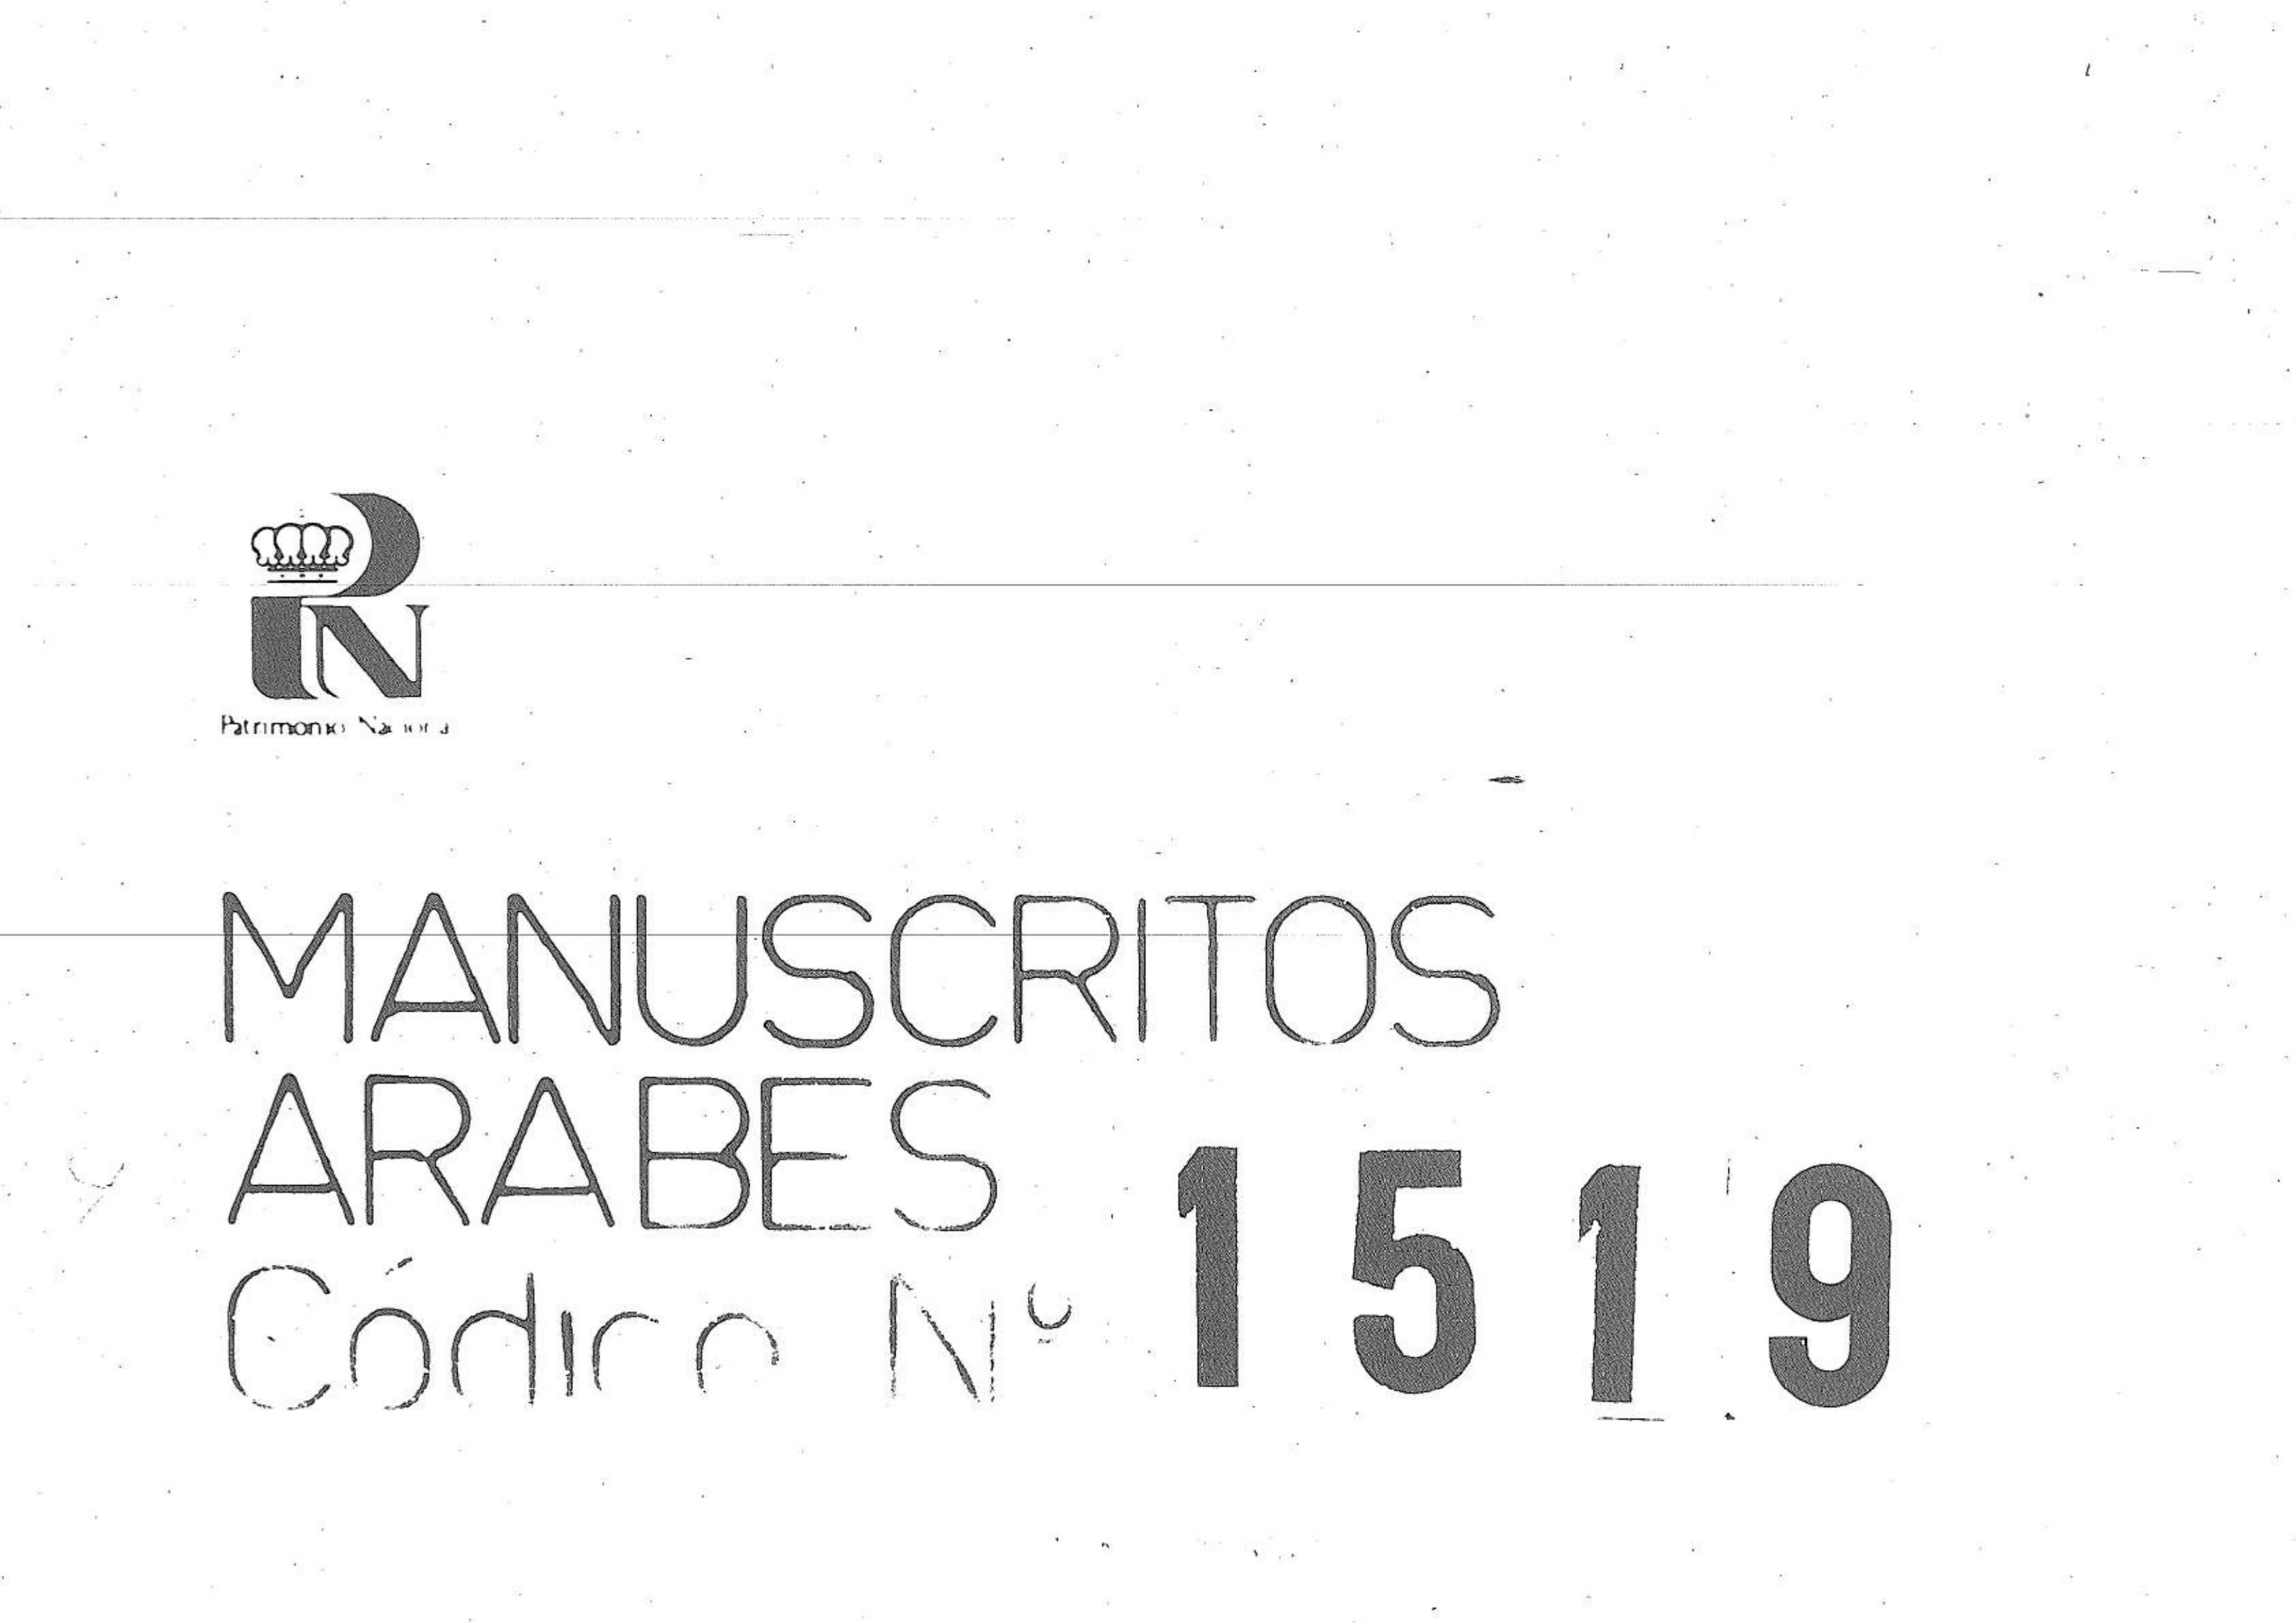 PN
Patrimonio Nacional
MANUSCRITOS
ARABES
Código Nº 1519